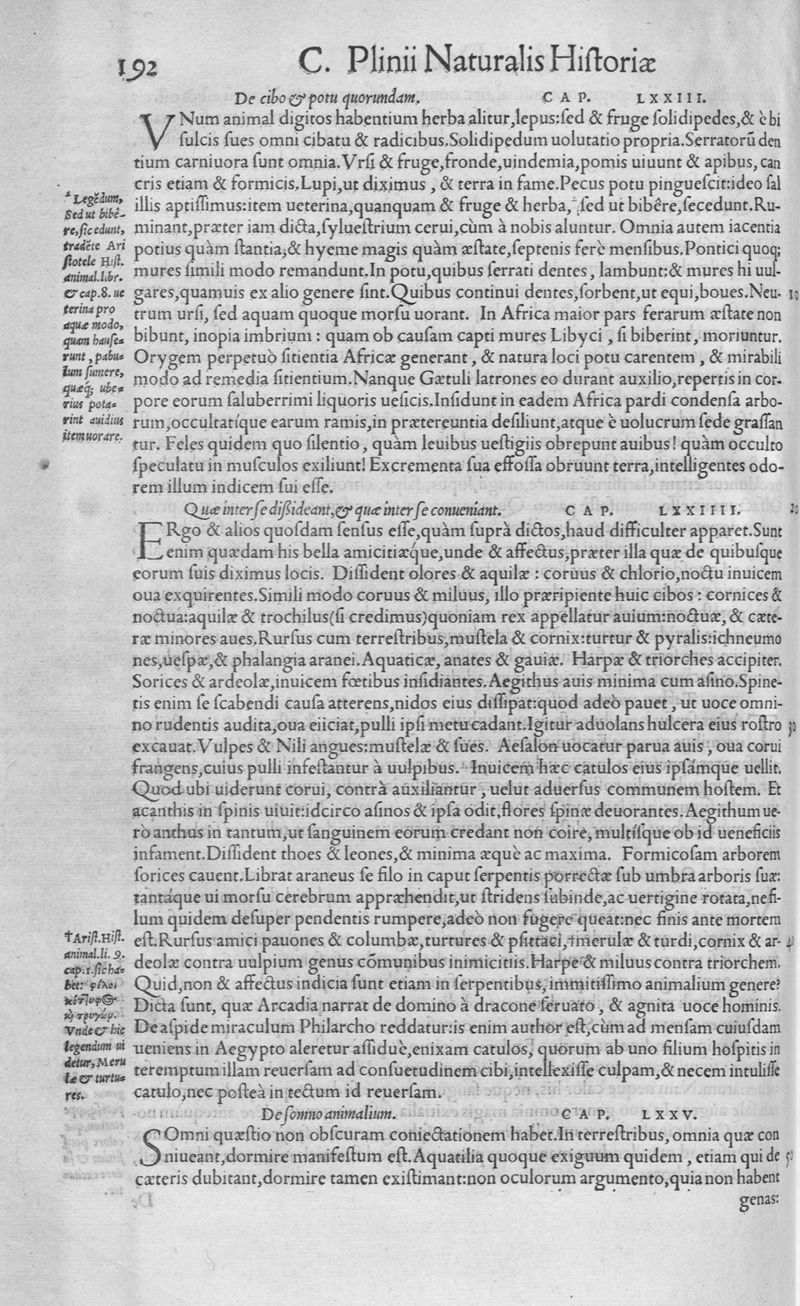 192
C. Plinii Naturalis Hiſtoriæ
De cibo & potu quorundam. CAP. LXXIII.
VNum animal digitos habentium herba alitur,lepus:ſed & fruge ſolidipedes,& è bi
ſulcis ſues omni cibatu & radicibus.Solidipedum uolutatio propria.Serratorū den
tium carniuora ſunt omnia.Vrſi & fruge,fronde,uindemia,pomis uiuunt & apibus,can
cris etiam & formicis.Lupi,ut diximus , & terra in fame.Pecus potu pingueſcit:ideo ſal
illis aptiſſimus:item ueterina,quanquam & fruge & herba,*ſed ut bibêre,ſecedunt.Ru-
minant,præter iam dicta,ſylueſtrium cerui,cùm à nobis aluntur. Omnia autem iacentia
potius quàm ſtantia,& hyeme magis quàm æſtate,ſeptenis ferè menſibus.Pontici quoq;
mures ſimili modo remandunt.In potu,quibus ſerrati dentes, lambunt:& mures hi uul-
gares,quamuis ex alio genere ſint.Quibus continui dentes,ſorbent,ut equi,boues.Neu- 10
trum urſi, ſed aquam quoque morſu uorant. In Africa maior pars ferarum æſtate non
bibunt, inopia imbrium : quam ob cauſam capti mures Libyci , ſi biberint, moriuntur.
Orygem perpetuò ſitientia Africæ generant, & natura loci potu carentem , & mirabili
modo ad remedia ſitientium.Nanque Gætuli latrones eo durant auxilio,repertis in cor-
pore eorum ſaluberrimi liquoris ueſicis.Inſidunt in eadem Africa pardi condenſa arbo-
rum,occultatíque earum ramis,in prætereuntia deſiliunt,atque è uolucrum ſede graſſan
tur. Feles quidem quo ſilentio , quàm leuibus ueſtigiis obrepunt auibus! quàm occulto
ſpeculatu in muſculos exiliunt! Excrementa ſua effoſſa obruunt terra,intelligentes odo-
rem illum indicem ſui eſſe.
Quæ inter ſe dißideant,& quæ inter ſe conueniant. CAP. LXXIIII. 20
ERgo & alios quoſdam ſenſus eſſe,quàm ſuprà dictos,haud difficulter apparet.Sunt
enim quædam his bella amicitiæque,unde & affectus,præter illa quæ de quibuſque
eorum ſuis diximus locis. Diſſident olores & aquilæ : coruus & chlorio,noctu inuicem
oua exquirentes.Simili modo coruus & miluus, illo præripiente huic cibos : cornices &
noctua:aquilæ & trochilus(ſi credimus)quoniam rex appellatur auium:noctuæ, & cæte-
ræ minores aues.Rurſus cum terreſtribus,muſtela & cornix:turtur & pyralis:ichneumo
nes,ueſpæ,& phalangia aranei.Aquaticæ, anates & gauiæ. Harpæ & triorches accipiter.
Sorices & ardeolæ,inuicem fœtibus inſidiantes.Aegithus auis minima cum aſino.Spine-
tis enim ſe ſcabendi cauſa atterens,nidos eius diſſipat:quod adeò pauet, ut uoce omni-
no rudentis audita,oua eiiciat,pulli ipſi metu cadant.Igitur aduolans hulcera eius roſtro 30
excauat.Vulpes & Nili angues:muſtelæ & ſues. Aeſalon uocatur parua auis, oua corui
frangens,cuius pulli infeſtantur à uulpibus. Inuicem hæc catulos eius ipſámque uellit.
Quod ubi uiderunt corui, contrà auxiliantur , uelut aduerſus communem hoſtem. Et
acanthis in ſpinis uiuit:idcirco aſinos & ipſa odit,flores ſpinæ deuorantes.Aegithum ue-
rò anthus in tantum,ut ſanguinem eorum credant non coire, multíſque ob id ueneficiis
infament.Diſſident thoes & leones,& minima æquè ac maxima. Formicoſam arborem
ſorices cauent.Librat araneus ſe filo in caput ſerpentis porrectæ ſub umbra arboris ſuæ:
tantáque ui morſu cerebrum appræhendit,ut ſtridens ſubinde,ac uertigine rotata,ne fi-
lum quidem deſuper pendentis rumpere,adeò non fugere queat:nec finis ante mortem
eſt.Rurſus amici pauones & columbæ,turtures & pſittaci,†merulæ & turdi,cornix & ar- 40
deolæ contra uulpium genus cōmunibus inimicitiis.Harpe & miluus contra triorchem.
Quid,non & affectus indicia ſunt etiam in ſerpentibus, immitiſſimo animalium genere?
Dicta ſunt, quæ Arcadia narrat de domino à dracone ſeruato , & agnita uoce hominis.
De aſpide miraculum Philarcho reddatur:is enim author eſt,cùm ad menſam cuiuſdam
ueniens in Aegypto aleretur aſſiduè,enixam catulos, quorum ab uno filium hoſpitis in
teremptum:illam reuerſam ad conſuetudinem cibi,intellexiſſe culpam,& necem intuliſſe
catulo,nec poſteà in tectum id reuerſam.
De ſomno animalium. CAP. LXXV.
SOmni quæſtio non obſcuram coniectationem habet.In terreſtribus, omnia quæ con
niueant,dormire manifeſtum eſt.Aquatilia quoque exiguum quidem , etiam qui de 50
cæteris dubitant,dormire tamen exiſtimant:non oculorum argumento,quia non habent
genas:
* Legēdum,
Sed ut bibê-
re,ſic edunt,
tradēte Ari
ſtotele Hiſt.
animal.libr.
& cap.8. ue
terina pro
aquæ modo,
quam hauſe-
runt, pabu-
lum ſumere,
quæq; ube-
rius pota-
rint auidius
item uorare.
†Ariſt.Hiſt.
animal.li. 9.
cap.1.ſic ha-
bet: φίλοι
κότ]υφ@
κὴ τρυγώμ.
Vnde & hic
legendum ui
detur, Meru
læ & turtu-
res.